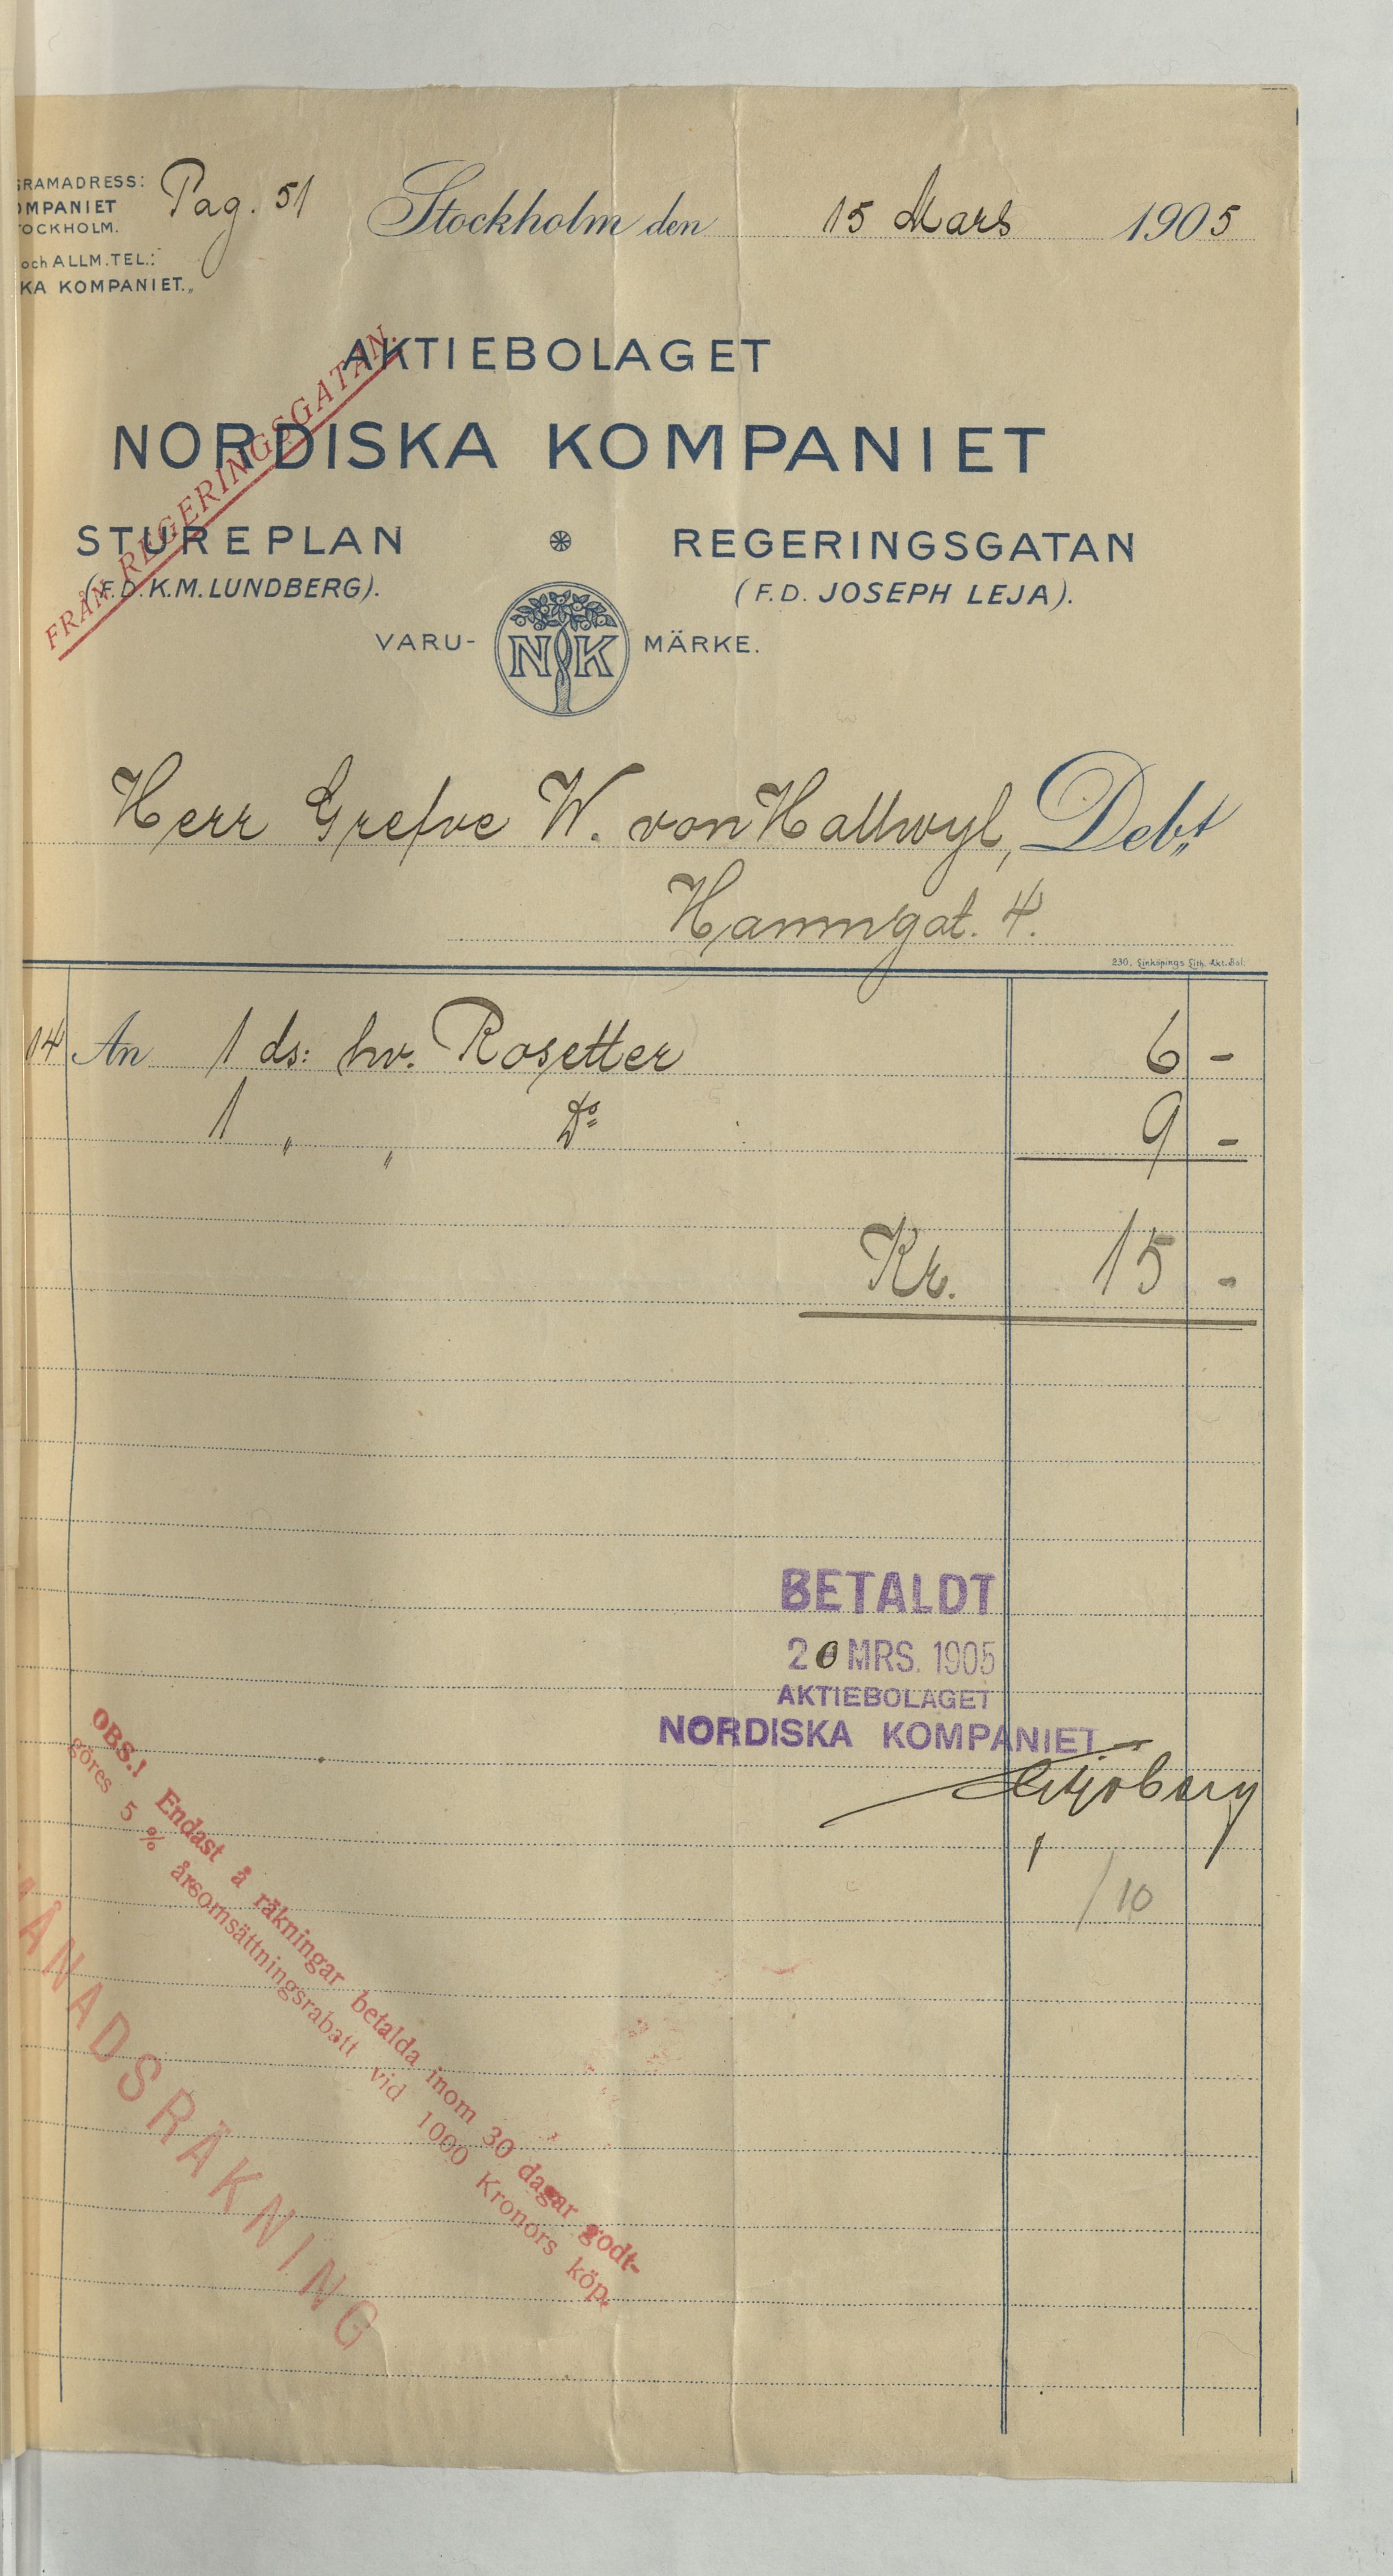 GRAMADRESS:
OMPANIET
TOCKHOLM.
och ALLM. TEL.:
KA KOMPANIET.„
Pag. 51
Stockholm den 15 Mars 1905
FRÅN REGERINGSGATAN.
AKTIEBOLAGET
NORDISKA KOMPANIET
STUREPLAN REGERINGSGATAN
(F.D. K.M. LUNDBERG). (F.D. JOSEPH LEJA).
VARU- NK MÄRKE.
Herr Grefve W. von Hallwyl, Debt
Hamngat. 4.
230. Linköpings Lith. Akt. Bol.
14 An 1 ds: hv. Rosetter 6 -
1 „ „ Do 9 -
Kr. 15 -
BETALDT
20 MRS. 1905
AKTIEBOLAGET
NORDISKA KOMPANIET
/10
OBS.! Endast å räkningar betalda inom 30 dagar godt-
göres 5 % årsomsättningsrabatt vid 1000 Kronors köp.
MÅNADSRÄKNING